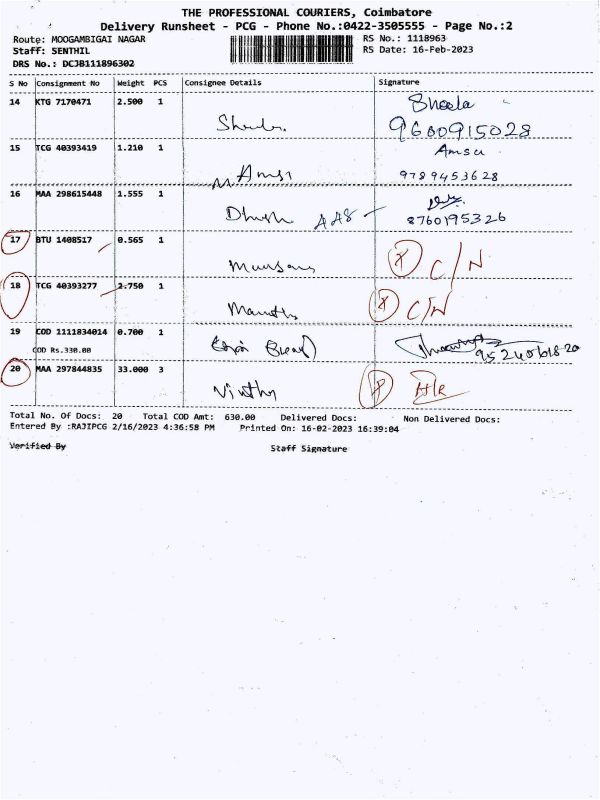 THE PROFESSIONAL COURIERS, Coimbatore
Delivery Runsheet - PCG - Phone No.:0422-3505555 - Page No.:2
Route: MOOGAMBIGAI NAGAR RS No.: 1118963
Staff: SENTHIL RS Date: 16-Feb-2023
DRS No.: DCJB111896302
S No Consignment No Weight PCS Consignee Details Signature
14 KTG 7170471 2.500 1 Sheela
9600915028
15 TCG 40393419 1.210 1 Amsu
9789453628
16 MAA 298615448 1.555 1
8760195326
17 BTU 1408517 0.565 1 C/N
18 TCG 40393277 2.750 1 C/N
19 COD 1111834014 0.700 1
COD Rs.330.00
20 MAA 297844835 33.000 3
Total No. Of Docs: 20 Total COD Amt: 630.00 Delivered Docs: Non Delivered Docs:
Entered By :RAJIPCG 2/16/2023 4:36:58 PM Printed On: 16-02-2023 16:39:04
Verified By Staff Signature